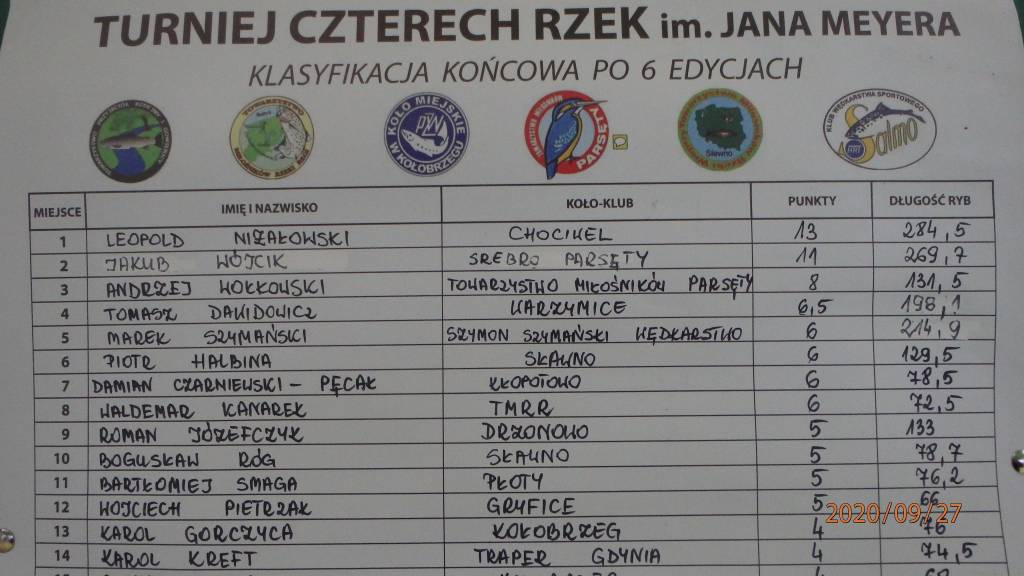 TURNIEJ CZTERECH RZEK im. JANA MEYERA
KLASYFIKACJA KOŃCOWA PO 6 EDYCJACH
KOŁO MIEJSKIE W KOŁOBRZEGU PARSĘTY Sławno KLUB WĘDKARSTWA SPORTOWEGO Salmo
MIEJSCE IMIĘ I NAZWISKO KOŁO-KLUB PUNKTY DŁUGOŚĆ RYB
1 LEOPOLD NIZAŁOWSKI CHOCIWEL 13 284,5
2 JAKUB WÓJCIK SREBRO PARSĘTY 11 269,7
3 ANDRZEJ WOŁKOWSKI TOWARZYSTWO MIŁOŚNIKÓW PARSĘTY 8 131,5
4 TOMASZ DAWIDOWICZ WARZYMICE 6,5 198,1
5 MAREK SZYMAŃSKI SZYMON SZYMAŃSKI WĘDKARSTWO 6 214,9
6 PIOTR HALBINA SŁAWNO 6 129,5
7 DAMIAN CZARNIEWSKI - PĘCAK KŁOPOTOWO 6 78,5
8 WALDEMAR KANAREK TMRR 6 72,5
9 ROMAN JÓZEFCZYK DRZONOWO 5 133
10 BOGUSŁAW RÓG SŁAWNO 5 78,7
11 BARTŁOMIEJ SMAGA PŁOTY 5 76,2
12 WOJCIECH PIETRZAK GRYFICE 5 66
2020/09/27
13 KAROL GORCZYCA KOŁOBRZEG 4 76
14 KAROL KREFT TRAPER GDYNIA 4 74,5